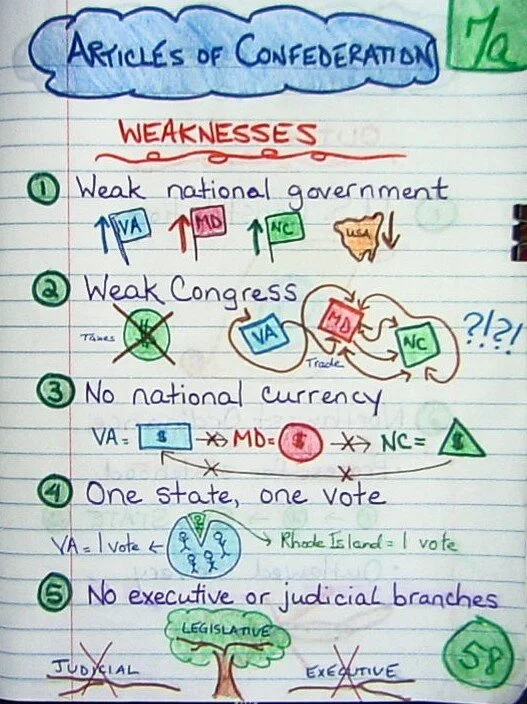 ARTICLES OF CONFEDERATION
7a
WEAKNESSES
1 Weak national government
VA MD NC USA
2 Weak Congress
Taxes $ VA MD NC ?!?!
Trade
3 No national currency
VA= $ MD= $ NC= $
4 One state, one vote
VA = 1 vote Rhode Island = 1 vote
5 No executive or judicial branches
LEGISLATIVE
JUDICIAL EXECUTIVE
58